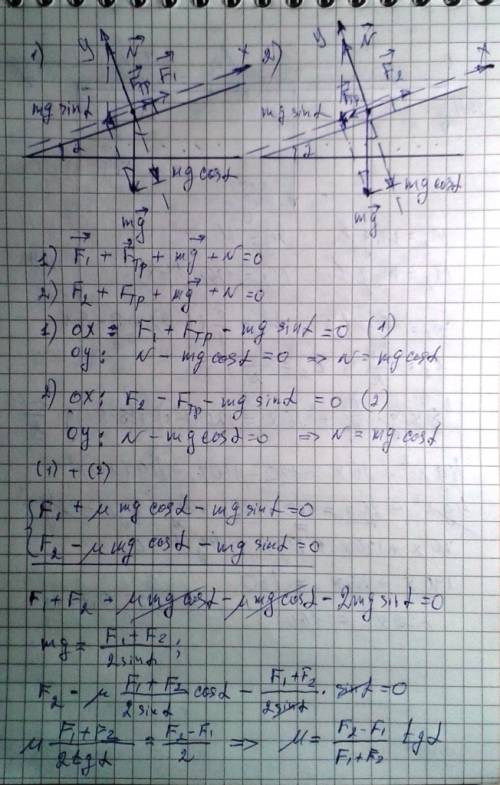 1) y N⃗ F⃗тр F⃗₁ x 2) y N⃗ F⃗тр F⃗₂ x
mg sinα α mg cosα mg⃗ mg sinα α mg cosα mg⃗
1) F⃗₁ + F⃗тр + mg⃗ + N = 0
2) F₂ + Fтр + mg⃗ + N = 0
1) ox: F₁ + Fтр - mg sinα = 0 (1)
oy: N - mg cosα = 0 => N = mg cosα
2) ox: F₂ - Fтр - mg sinα = 0 (2)
oy: N - mg cosα = 0 => N = mg·cosα
(1) + (2)
{F₁ + μ mg cosα - mg sinα = 0
F₂ - μ mg cosα - mg sinα = 0
F₁ + F₂ + μ mg cosα - μ mg cosα - 2mg sinα = 0
mg = (F₁ + F₂)/(2 sinα);
F₂ - μ (F₁ + F₂)/(2 sinα) cosα - (F₁ + F₂)/(2 sinα) · sinα = 0
μ (F₁ + F₂)/(2 tgα) = (F₂ - F₁)/2 => μ = (F₂ - F₁)/(F₁ + F₂) tgα